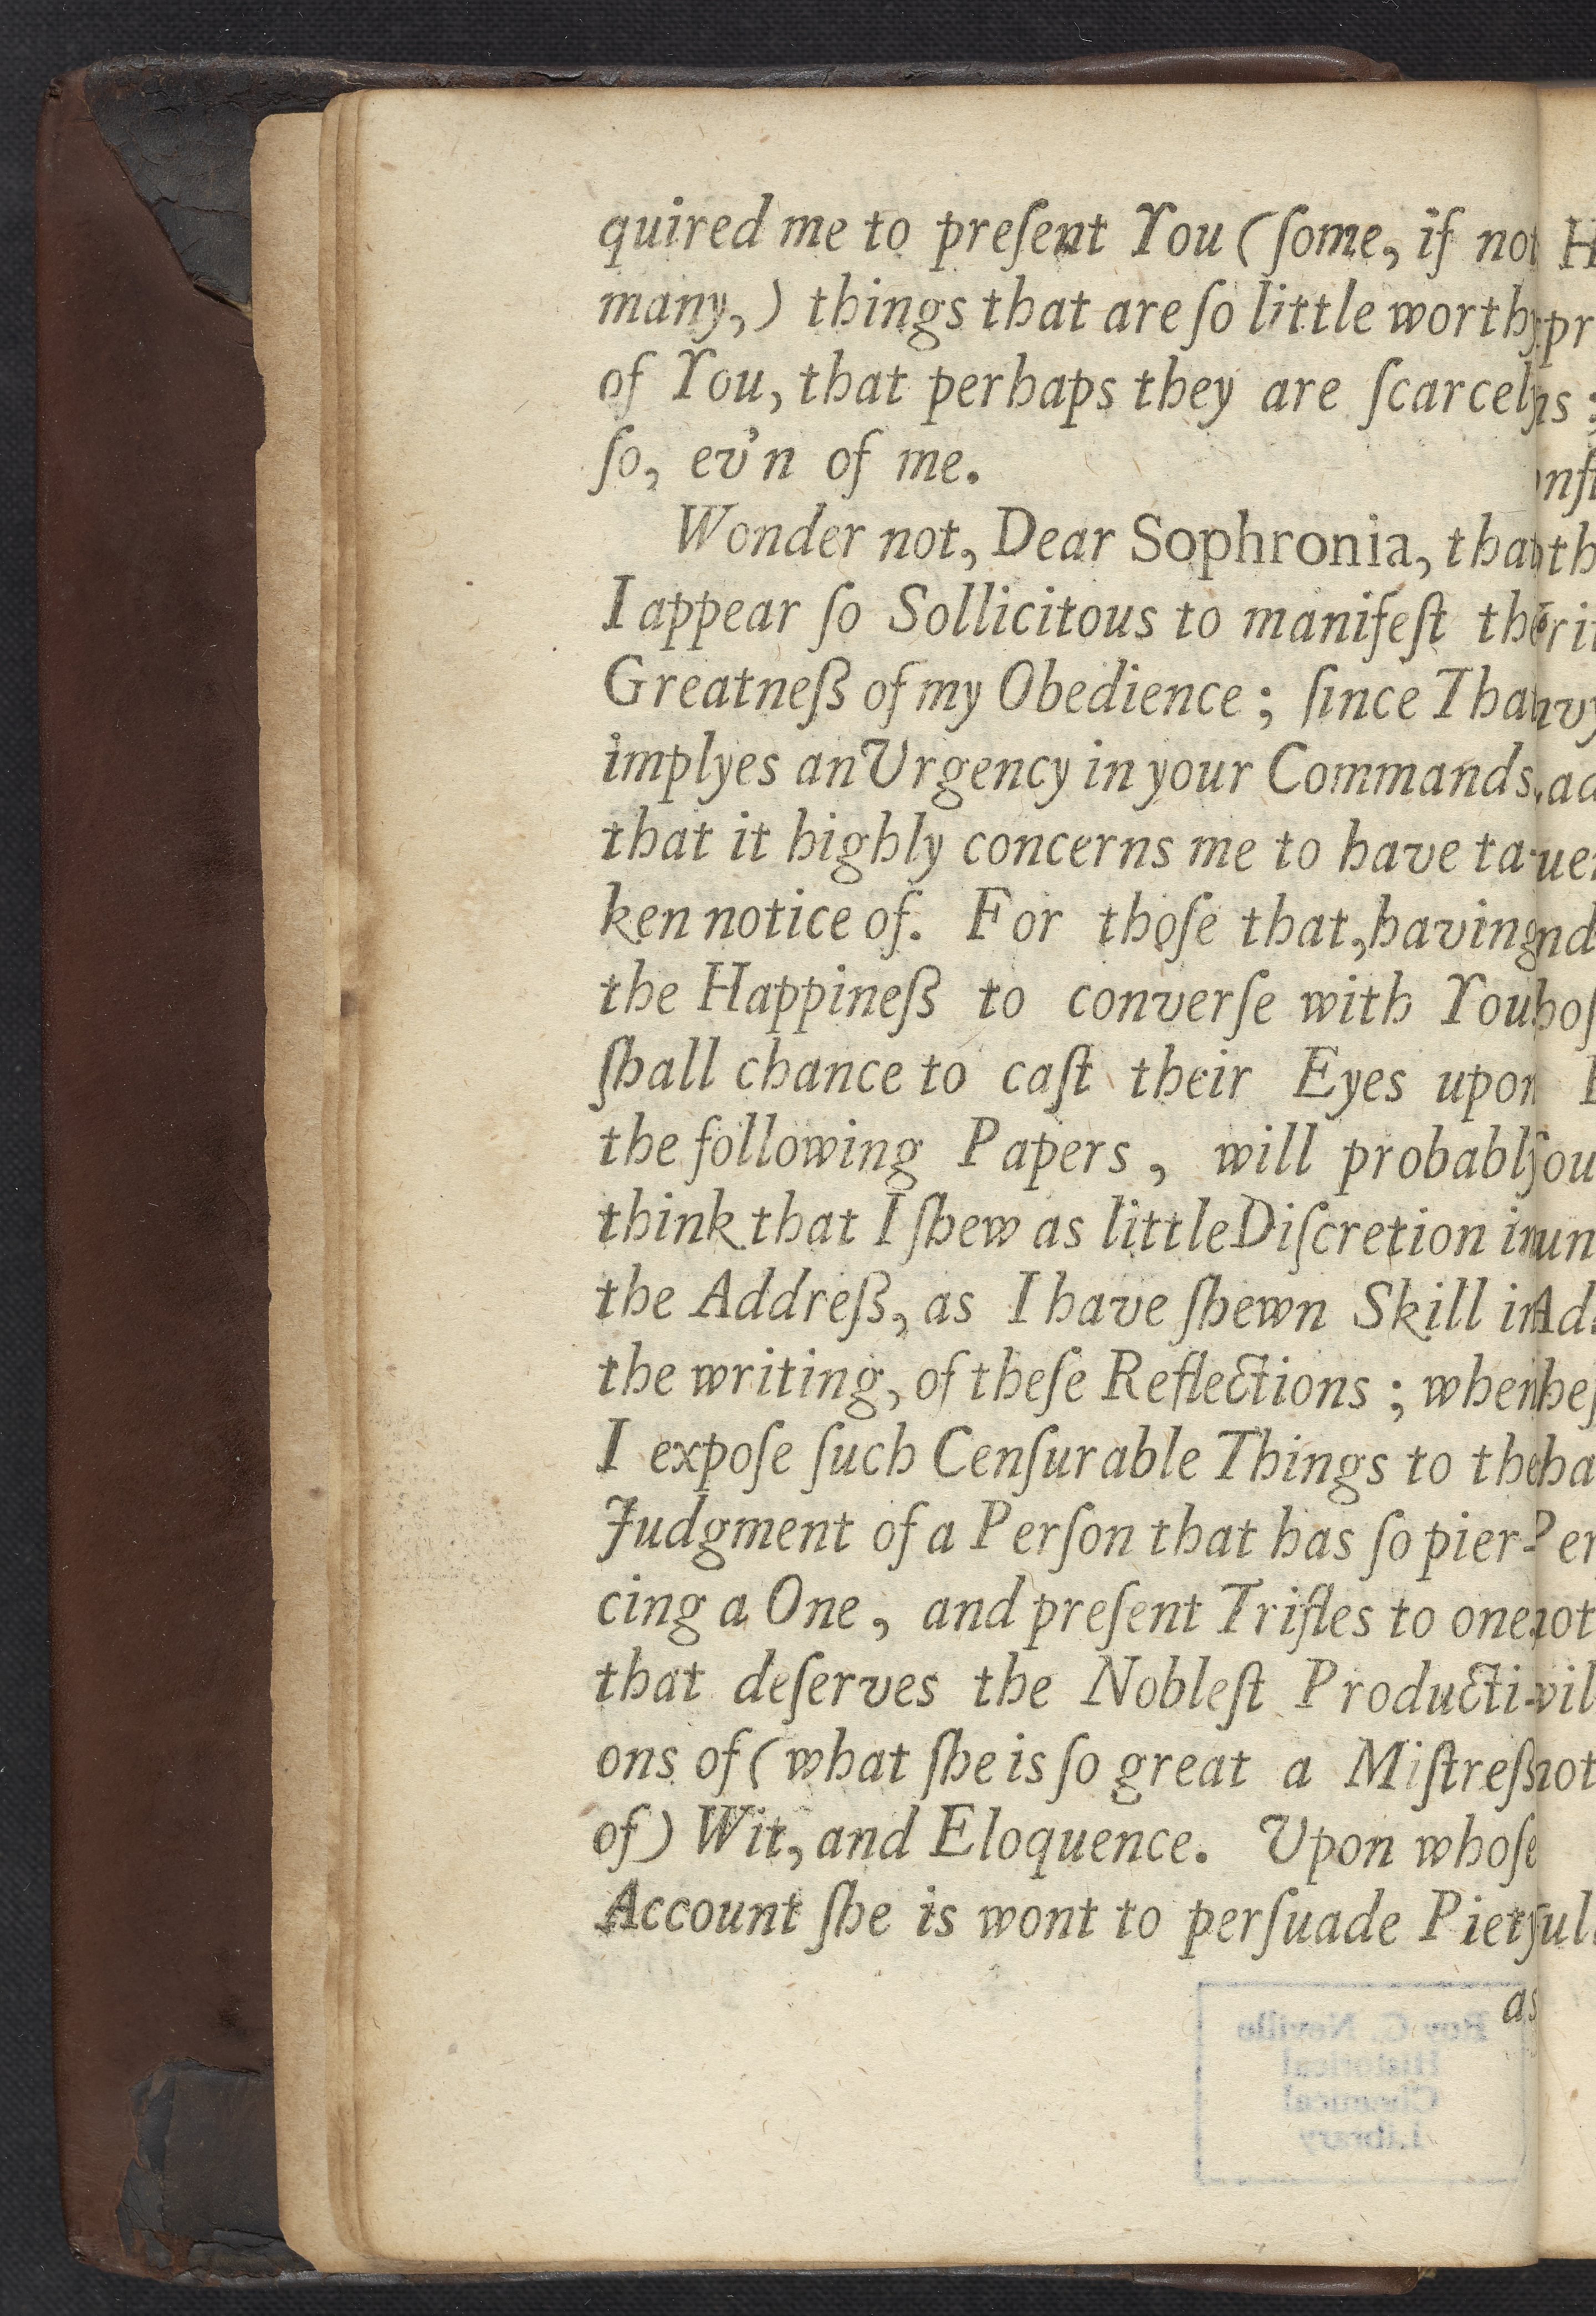 quired me to preſent You (ſome, if not
many,) things that are ſo little worthy
of You, that perhaps they are ſcarcely
ſo, ev'n of me.
Wonder not, Dear Sophronia, that
I appear ſo Sollicitous to manifeſt the
Greatneſs of my Obedience; ſince That
implyes an Urgency in your Commands,
that it highly concerns me to have ta-
ken notice of. For thoſe that, having
the Happineſs to converſe with You,
ſhall chance to caſt their Eyes upon
the following Papers, will probably
think that I ſhew as little Diſcretion in
the Addreſs, as I have ſhewn Skill in
the writing, of theſe Reflections; when
I expoſe ſuch Cenſurable Things to the
Judgment of a Perſon that has ſo pier-
cing a One, and preſent Trifles to one,
that deſerves the Nobleſt Producti-
ons of (what ſhe is ſo great a Miſtreſs
of) Wit, and Eloquence. Upon whoſe
Account ſhe is wont to perſuade Piety
as
Roy G. Neville
Historical
Chemical
Library